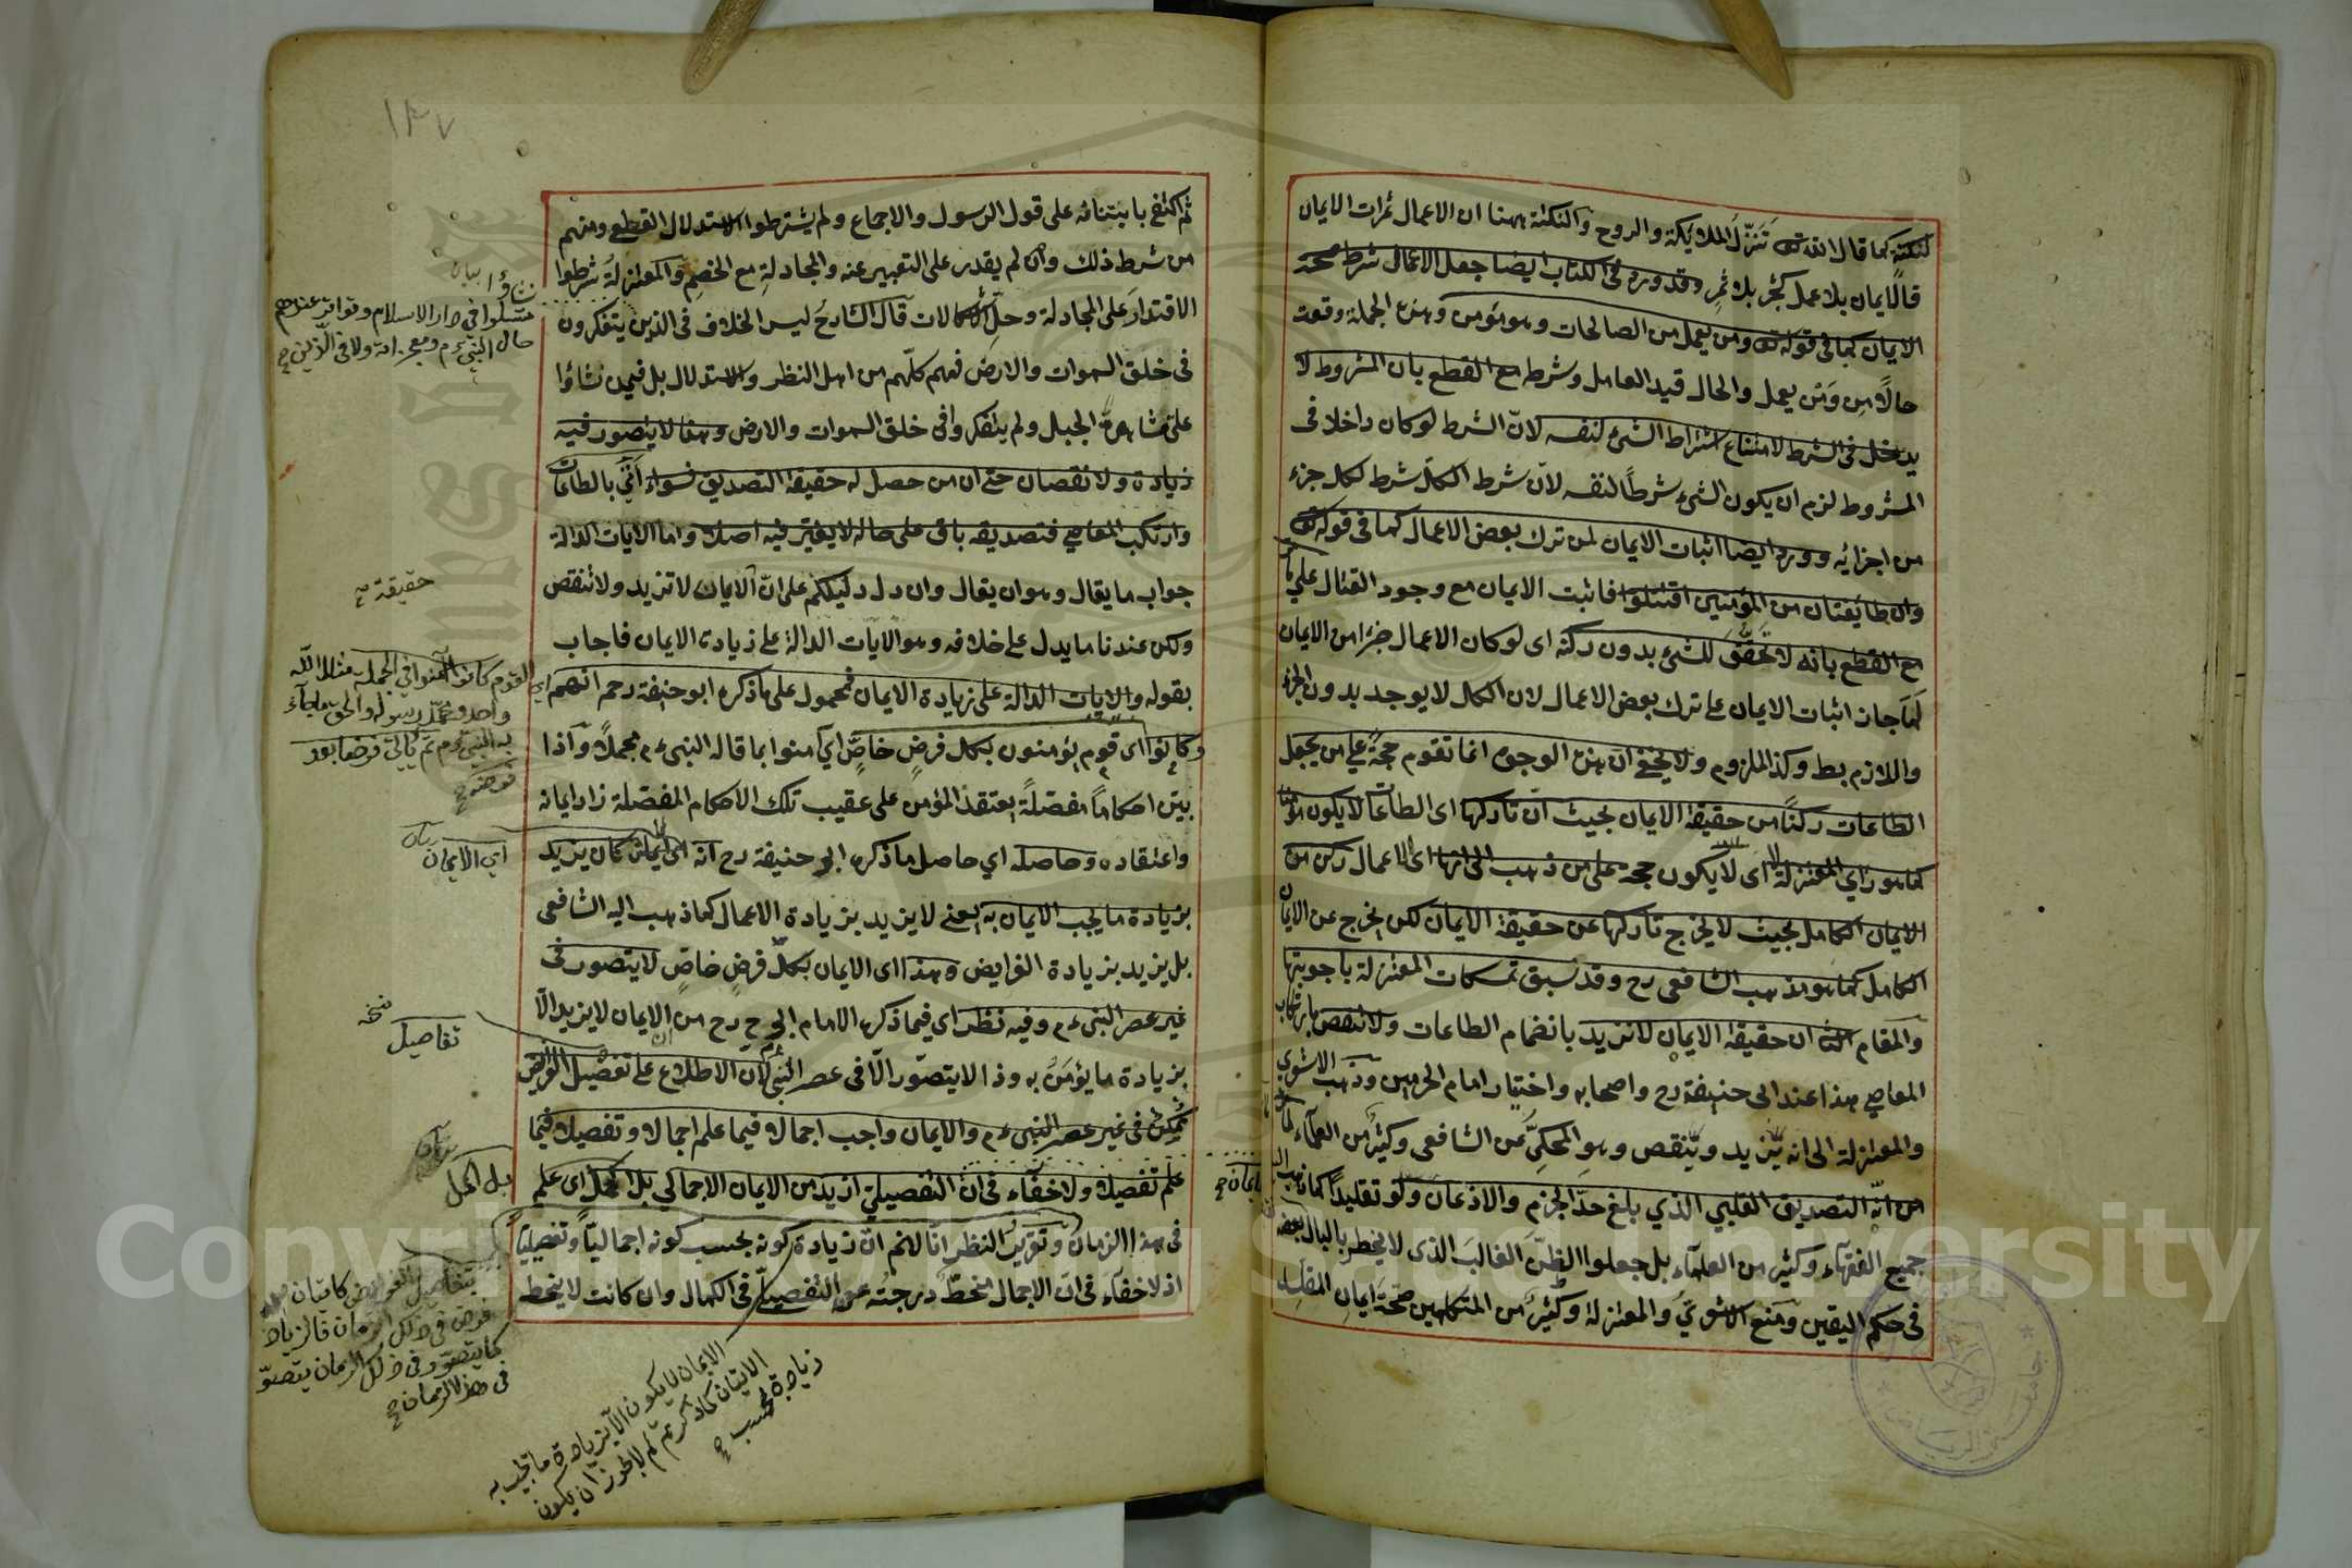 لنكتة كما قال الله تعالى تنزل الملائكة والروح والنكتة ههنا ان الاعمال ثمرات الايمان
فالايمان بلا عمل كشجر بلا ثمر وقد ورد فى الكتاب ايضا جعل الاعمال شرط صحة
الايمان كما فى قوله تعالى ومن يعمل من الصالحات وهو مؤمن وهذه الجملة وقعت
حالا من ومن يعمل والحال قيد العامل وشرط مع القطع بان المشروط لا
يدخل فى الشرط لامتناع اشتراط الشئ لنفسه لان الشرط لو كان داخلا فى
المشروط لزم ان يكون الشئ شرطا لنفسه لان شرط الكل شرط لكل جزء
من اجزائه وورد ايضا اثبات الايمان لمن ترك بعض الاعمال كما فى قوله تعالى
وان طايفتان من المؤمنين اقتتلوا فاثبت الايمان مع وجود القتال على
مع القطع بانه لا تحقق للشئ بدون ركنه اى لو كان الاعمال جزء من الايمان
لما جاز اثبات الايمان على ترك بعض الاعمال لان الكل لا يوجد بدون الجزء
واللازم بط وكذا الملزوم ولا يخفى ان هذه الوجوه انما تقوم حجة على من يجعل
الطاعات ركنا من حقيقة الايمان بحيث ان تاركها اى الطاعات لا يكون مؤمنا
كما هو راي المعتزلة اى لا يكون حجة على من ذهب الى انها اى الاعمال ركن من
الايمان الكامل بحيث لا يخرج تاركها عن حقيقة الايمان لكن يخرج عن الايمان
الكامل كما هو مذهب الشافعى رح وقد سبق تمسكات المعتزلة باجوبتها
والمقام الثانى ان حقيقة الايمان لا تزيد بانضمام الطاعات ولا تنقص بارتكاب
المعاصي هذا عند ابى حنيفة رح واصحابه واختيار امام الحرمين وذهب الاشعرى
والمعتزلة الى انه يزيد وينقص وهو المحكى عن الشافعى وكثير من العلماء لما
من انه التصديق القلبي الذي بلغ حد الجزم والاذعان ولو تقليدا كما ذهب اليه
جميع الفقهاء وكثير من العلماء بل جعلوا الظن الغالب الذى لا يخطر بالبال بعضه
فى حكم اليقين ومنع الاشعري والمعتزلة وكثير من المتكلمين صحة ايمان المقلد
ايمان صح
١٣٧
ثم اكتفى بابتنائه على قول الرسول والاجماع ولم يشترطوا الاستدلال القطع ومنهم
من شرط ذلك وان لم يقدر على التعبير عنه والمجادلة مع الخصم والمعتزلة شرطوا
الاقتدار على المجادلة وحل الاشكالات قال الشارح ليس الخلاف فى الذين يتفكرون
فى خلق السموات والارض فهم كلهم من اهل النظر والاستدلال بل فيمن نشاؤا
على شاهق الجبل ولم يتفكروا فى خلق السموات والارض وهذا لا يتصور فيه
زيادة ولا نقصان حتى ان من حصل له حقيقة التصديق فسواء اتى بالطاعات
وارتكب المعاصي فتصديقه باق على حاله لا يغير فيه اصلا واما الايات الدالة
جواب ما يقال وهو ان يقال وان دل دليلكم على ان الايمان لا تزيد ولا تنقص
ولكن عندنا ما يدل على خلافه وهو الايات الدالة على زيادة الايمان فاجاب
بقوله والايات الدالة على زيادة الايمان فمحمول على ما ذكره ابو حنيفة رحمه انهم
وكانوا اى قوم يؤمنون بكل فرض خاص اي امنوا بما قاله النبى عم مجملا واذا
بين احكاما مفصلة يعتقد المؤمن على عقيب تلك الاحكام المفصلة زاد ايمانه
واعتقاده وحاصله اي حاصل ما ذكره ابو حنيفة رح انه اى الايمان كان يزيد
بزيادة ما يجب الايمان به يعنى لا يزيد بزيادة الاعمال كما ذهب اليه الشافعى
بل يزيد بزيادة الفرايض وهذا اى الايمان بكل فرض خاص لا يتصور فى
غير عصر النبى عم وفيه نظر اي فيما ذكره الامام ابو ح رح من ان الايمان لا يزيد الا
بزيادة ما يؤمن به وذا لا يتصور الا فى عصر النبى عم لان الاطلاع على تفصيل الفرائض
ممكن فى غير عصر النبى عم والايمان واجب اجمالا فيما علم اجمالا وتفصيلا فيما
علم تفصيلا ولا خفاء فى ان التفصيلي ازيد من الايمان الاجمالي بل اكمل اى علم
فى هذا الزمان وتقرير النظر انا لا نم ان زيادة كونه بحسب كونه اجماليا وتفصيليا
اذ لا خفاء فى ان الاجمال منحط درجته عن التفصيلى فى الكمال وان كانت لا ينحط
نشاؤا بيان
فى دار الاسلام وتواتر عندهم
حال النبى عم ومعجزاته ولا فى الذين صح
حقيقة صح
القوم كانوا امنوا فى الجملة مثلا الله
واحد ومحمد رسوله والحق ما جاء
به النبى عم ثم ياتى فرض بعد
فرض صح
اي الايمان بيان
تفاصيل نسخه
بل اكمل
بتفاصيل الفرائض كاتيان
فرض فى ذلك الزمان فالزيادة
كما يتصور فى ذلك الزمان يتصور
فى هذا الزمان صح
الايمان لا يكون الا بزيادة ما تجب به
الاتيان كما ذكرتم لم لا يجوز ان يكون
زيادة بحسب صح